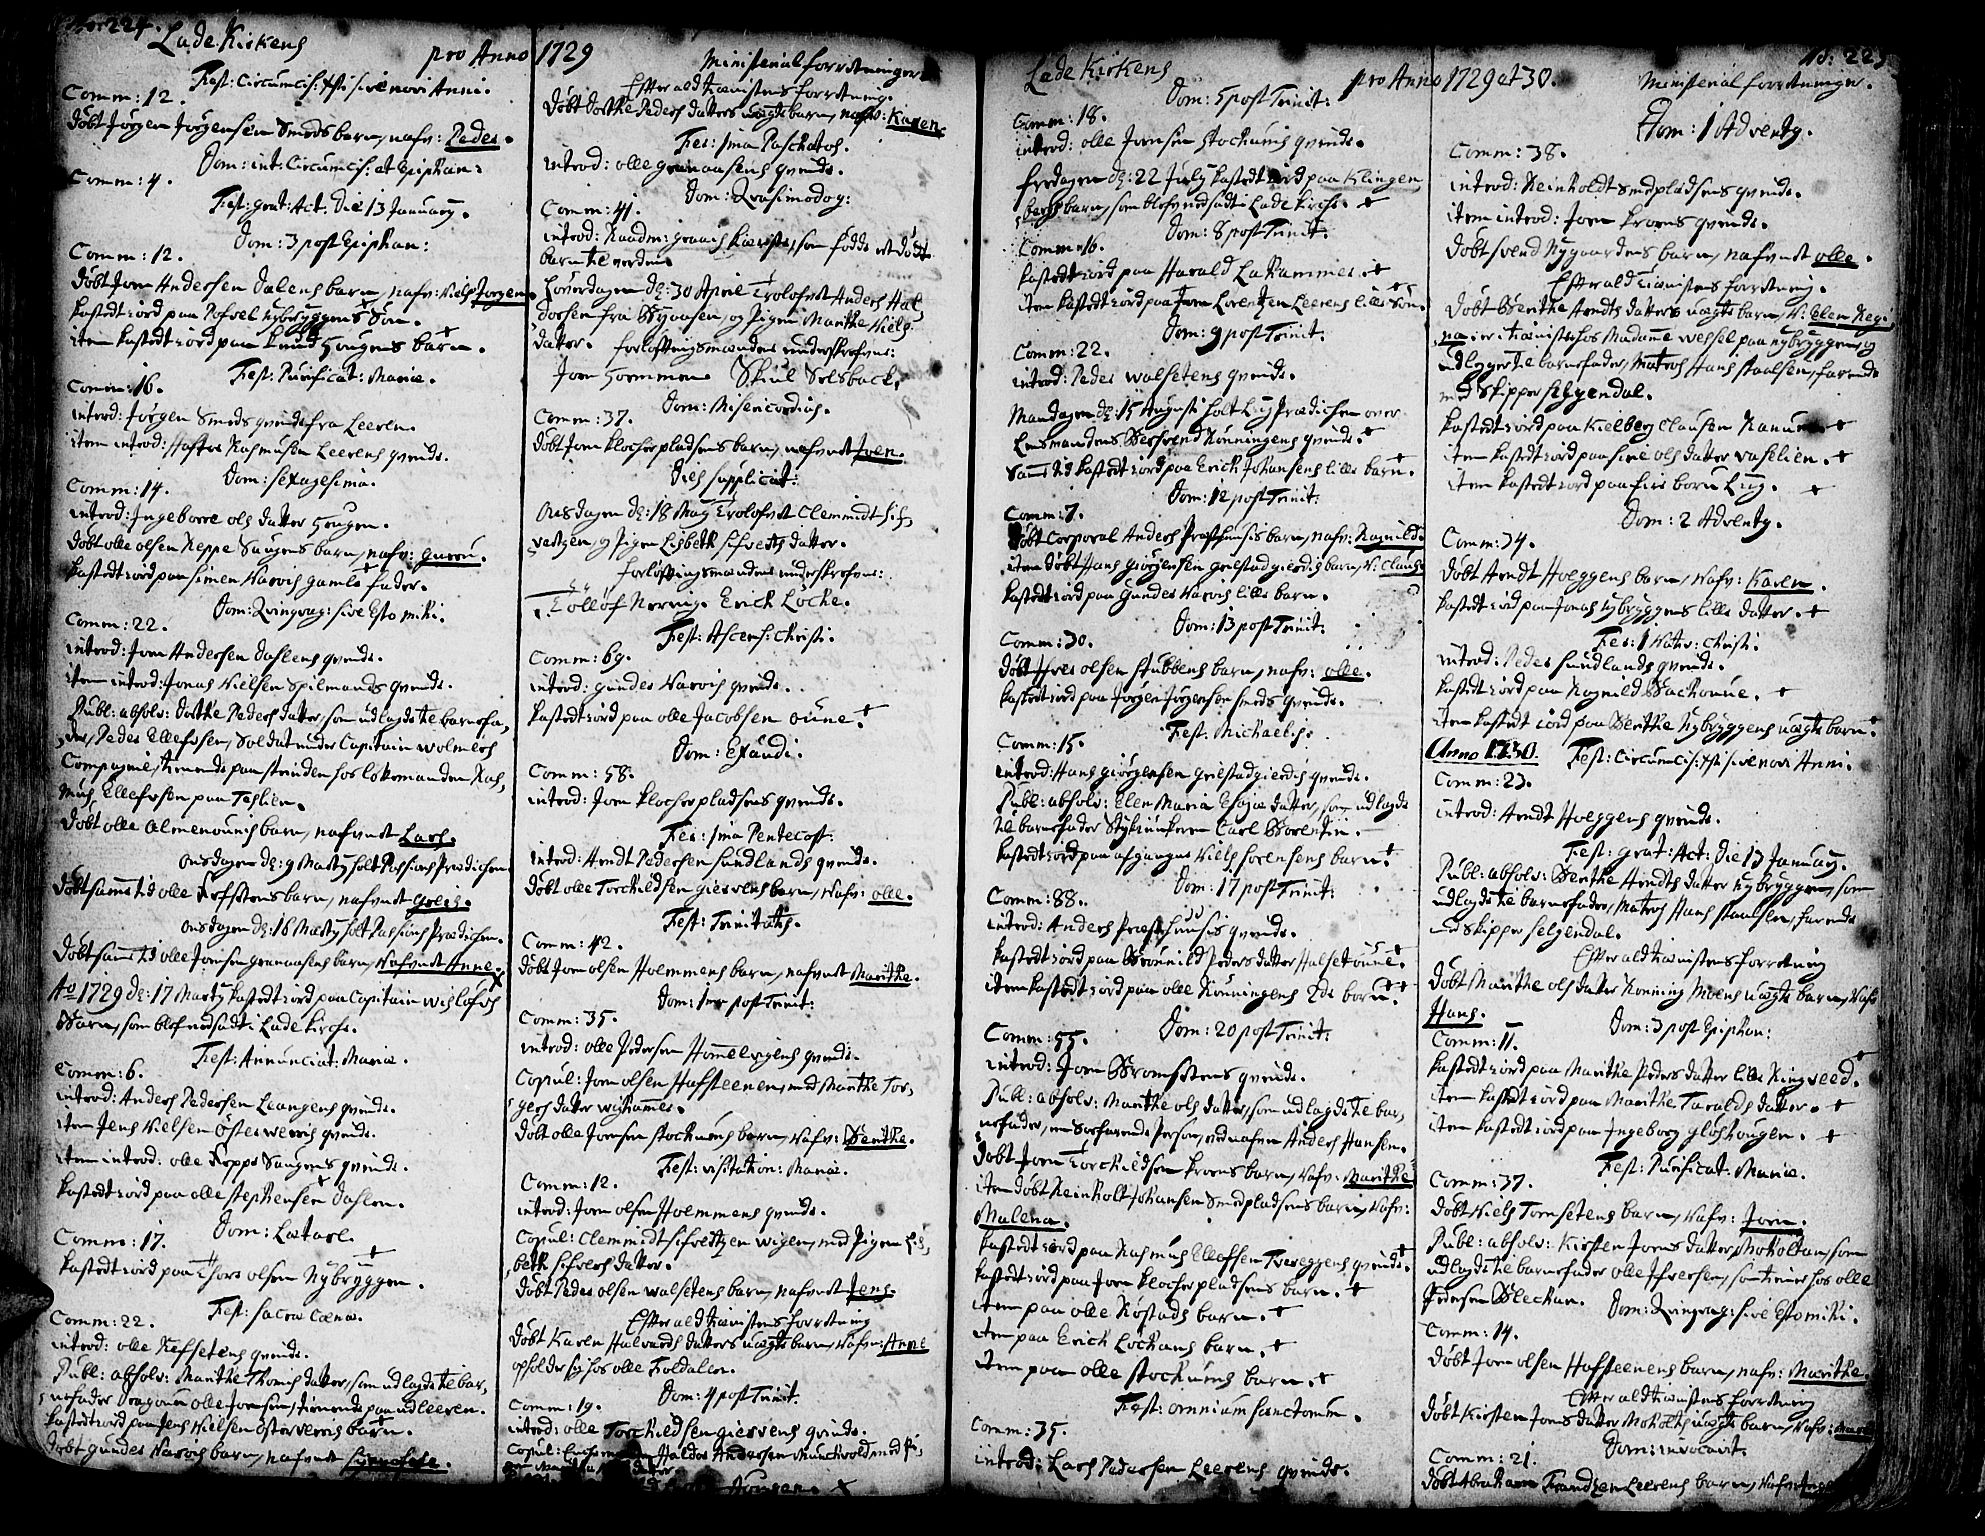 No: 224.
Lade Kirkens
pro Anno 1729
Ministerial forretninger.
Fest: Circumcis: Xsti sive novi Anni.
Comm: 12.
Döbt Jörgen Jörgensen Smeds barn, nafv: Peder.
Dom: int: Circumcis: et Epiphan:
Comm: 4.
Fest: grat: Act: Die 13 January.
Dom: 3 post Epiphan:
Comm: 12.
Döbt Joen Andersen Dalens barn, nafv: Niels Jörgen.
kastedt iord paa Nybryggens Sön.
item kastedt iord paa Knud Haugens barn. +
Fest: Purificat: Mariæ.
Comm: 16.
introd: Jörgen Smeds qvinde fra Leeren.
item introd: Rasmusen Leerens qvinde.
Dom: sexagesima.
Comm: 14.
introd: Ingeborre ols datter Haugen.
Döbt olle olsen Reppe Haugens barn, nafv: guru.
kastedt iord paa Simen Narvis gamle fader.
Dom: Qvinqvag: sive Esto mihi.
Comm: 22.
introd: Joen Andersen Dahlens qvinde.
item introd: Jonas Nielsen Spilmands qvinde.
Publ: absolv: Dorthe Peders datter, som udlagde til barnefa-
der, Peder Ellefsen, Soldat under Capitain Wolmers
Compagnie, tienende paa strinden hos lokemanden Ras-
mus Ellefsen paa Teslien.
Döbt olle Almenounis barn, nafnet Lars.
onsdagen d: 9 Marty holt Passions Prædichen.
Döbt samme tid olle Refsetens barn, nafnet
onsdagen d: 16 Marty holt Passions Prædichen.
Döbt samme tid olle Joensen granaasens barn, Nafnet Anne.
Ao 1729 d: 17 Marty kastedt iord paa Capitain Wislöfs
Barn, som blef nedsadt i Lade Kirche.
Fest: Annunciat: Mariæ.
Comm: 6.
introd: Anders Pedersen Leangens qvinde.
item Jens Nielsen österweris qvinde.
item introd: olle Reppe Haugens qvinde.
kastedt iord paa olle stephensen dahlen.
Dom: Lætare.
Comm: 17.
kastedt iord paa Thore olsen Nybryggen.
Fest: sacræ cænæ.
Comm: 22.
introd: olle Refsetens qvinde.
Publ: absolv: Marithe Thomis datter, som udlagde til bar-
nefader Dragoun olle Joensen, tienende paa udleeren.
kastedt iord paa Jens Nielsen österveris barn.
Döbt gunder Narvis barn, nafnet
Efter ald tienistens forretning.
Döbt Dorthe Peders datters uægte barn, nafv: Karen.
Fer: 1ma Paschatos.
introd: olle granaasens qvinde.
Dom: Qvasimodog:
Comm: 41.
introd: som födde et död
barn til verden.
Löverdagen d: 30 April trolofvet Anders Hal-
dorsen fra Byaasen, og Pigen Marithe Niels
datter. forlofningsmændene underskrefvne:
Joen Hoemmen. Skiul Solsback.
Dom: Misericordias.
Comm: 37.
Döbt Joen klocherpladsens barn, nafnet Joen.
Dies supplicat:
Onsdagen d: 18 May trolofvet Clemmidt Sif-
vertzen, og Pigen Lisbeth Sifverts datter.
forlofningsmændene underskrefvne:
Tollof Nervig. Erick Löche.
Fest: Ascens: Christi.
Comm: 69.
introd: gunder Narvis qvinde.
kastedt iord paa olle Jacobsen oune. +
Dom: Exaudi.
Comm: 58.
introd: Joen klocherpladsens qvinde.
Fer: 1ma Pentecost:
introd: Arendt Pedersen sundlands qvinde.
Döbt olle Torchildsen gierens barn, Nafv: olle.
Fest: Trinitatis.
Comm: 42.
Döbt Joen olsen Hoemmens barn, nafnet Marithe.
Dom: 1ma post Trinit:
Comm: 35.
introd: olle Pedersen qvinde.
Copul: Joen olsen Hafsteenen, med Marithe Tor-
gers datter
Döbt olle Joensen stockunes barn, Nafv: Benthe.
Fest: visitation: Mariæ.
Comm: 12.
introd: Joen olsen Hoemmens qvinde.
Copul: Clemmidt Sifvertzen wigen, med Pigen Lis-
beth Sifvers datter.
Döbt Peder olsen walsetens barn, nafnet Jens.
Efter ald tienistens forretning
Döbt Karen Halvards datters uægte barn, Nafv: Anne
opholder sig hos olle Foldalen.
Dom: 4 post Trinit.
Comm: 19.
introd: olle Torchildsen gierens qvinde.
Copul: Haldor Andersen Munchvold med Pi-
Lade Kirkens
pro Anno 1729 et 30.
Ministerial forretninger.
No: 225
Dom: 5 post Trinit:
Comm: 18.
introd: olle Joensen stockunis qvinde.
fredagen d: 22 July kastedt iord paa Klingen-
bergs barn, som blef nedsadt i Lade kirche. +
Dom: 8 post Trinit.
Comm: 16.
kastedt iord paa Harald Lahammer. +
item kastedt iord paa Joen Lorentzen Leerens lille Sön.
Dom: 9 post Trinit.
Comm: 22.
introd: Peder walsetens qvinde.
Mandagen d: 15 Augusti holt Liig Prædichen over
Rönningens qvinde. +
Samme tid kastedt iord paa Erick Johansens lille barn.
Dom: 12 post Trinit:
Comm: 7.
Döbt Corporal Anders Præsthusis barn, nafv: Ragnild.
item döbt Hans giörgensen gielstad gierdis barn, N: Claus.
kastedt iord paa gunder Narvis lille barn.
Dom: 13 post Trinit:
Comm: 30.
Döbt Iver olsen stubbens barn, nafv: olle.
kastedt iord paa Jörgen Jörgensen smeds qvinde.
Fest: Michaelis.
Comm: 15.
introd: Hans giörgensen gielstad gierdis qvinde.
Publ: absolv: Elen Maria datter, som udlagde
til barnefader Carl Borentin.
kastedt iord paa afgangne Niels Sorensens barn. +
Dom: 17 post Trinit:
Comm: 88.
introd: Anders Præsthuusis qvinde.
kastedt iord paa Brönnild Peders datter Halsetoune. +
item kastedt iord paa olle Rönningens 2de börn. +
Dom: 20 post Trinit:
Comm: 55.
introd: Joen Bromsetens qvinde.
Publ: absolv: Marithe ols datter, som udlagde til bar-
nefader, en Söefarende Person, ved nafven Anders Hansen.
Döbt Joen Torchildsen kroens barn, Nafv: Marithe
item döbt Reinholt Johansen Smedpladsens barn, Nafv:
Malena.
kastedt iord paa Rasmus Ellefsen Tvereggens qvinde. +
kastedt iord paa Joen klocherpladsens barn. +
item paa olle Röstads barn. +
item paa Erick Löchens barn. +
item paa olle stockunis barn. +
Fest: omnium sanctorum.
Comm: 35.
introd: Lars Pedersen Leerens qvinde.
Dom: 1 Adventy.
Comm: 38.
introd: Reinholdt smedpladsens qvinde.
item introd: Joen kroens qvinde.
Döbt svend Nygaardens barn, nafnet olle.
Efter ald tienistens forretning.
Döbt Benthe Arendts datters uægte barn, N: Elen Regi-
na, er i tieniste hos Madame wessel paa nybryggen, og
udlegger til barnefader, Matros Hans staalsen, farende
med Skipper Helgendal.
kastedt iord paa Kielberg Clausen +
item kastedt iord paa Siri ols datter vaselien. +
item kastedt iord paa +
Dom: 2 Adventy.
Comm: 34.
Döbt Arendt Hoeggens barn, Nafv: Karen.
kastedt iord paa Jonas Nybryggens lille datter. +
Fer: 1 Nativ: Christi.
introd: Peder sundlands qvinde.
kastedt iord paa Ragnild Backoune. +
item kastedt iord paa Benthe Nybryggens uægte barn. +
Anno 1730. Fest: Circumcis: Xsti sive novi Anni.
Comm: 23.
introd: Arendt Hoeggens qvinde.
Fest: grat: Act: Die 13 January.
Publ: absolv: Benthe Arendts datter Nybryggen, som
udlagde til barnefader, Matros Hans staalsen, farende
med Skipper Helgendal.
Efter ald tienistens forretning
Döbt Marithe ols datter Rönning Moens uægte barn, Nafv:
Hans.
Dom: 3 post Epiphan:
Comm: 11.
kastedt iord paa Marithe Peders datter lille Ringveed. +
item kastedt iord paa Marithe Taralds datter. +
item kastedt iord paa Ingeborg gløshaugen. +
Fest: Purificat: Mariæ.
Comm: 37.
Döbt Niels Tomsetens barn, Nafv: Joen.
Publ: absolv: Kirsten Joens datter Moholtan, som
udlagde til barnefader olle Iversen, som tiener hos olle
Pedersen Blechan.
Dom: Qvinqvag: sive Esto mihi.
Comm: 14.
Döbt Joen olsen Hafsteenens barn, nafv: Marithe.
Efter ald tienistens forretning
Döbt Kirsten Jons datter Moholts uægte barn, Nafv:
Dom: invocavit.
Comm: 21.
Döbt Abraham Frandzen Leerens barn, Nafv: